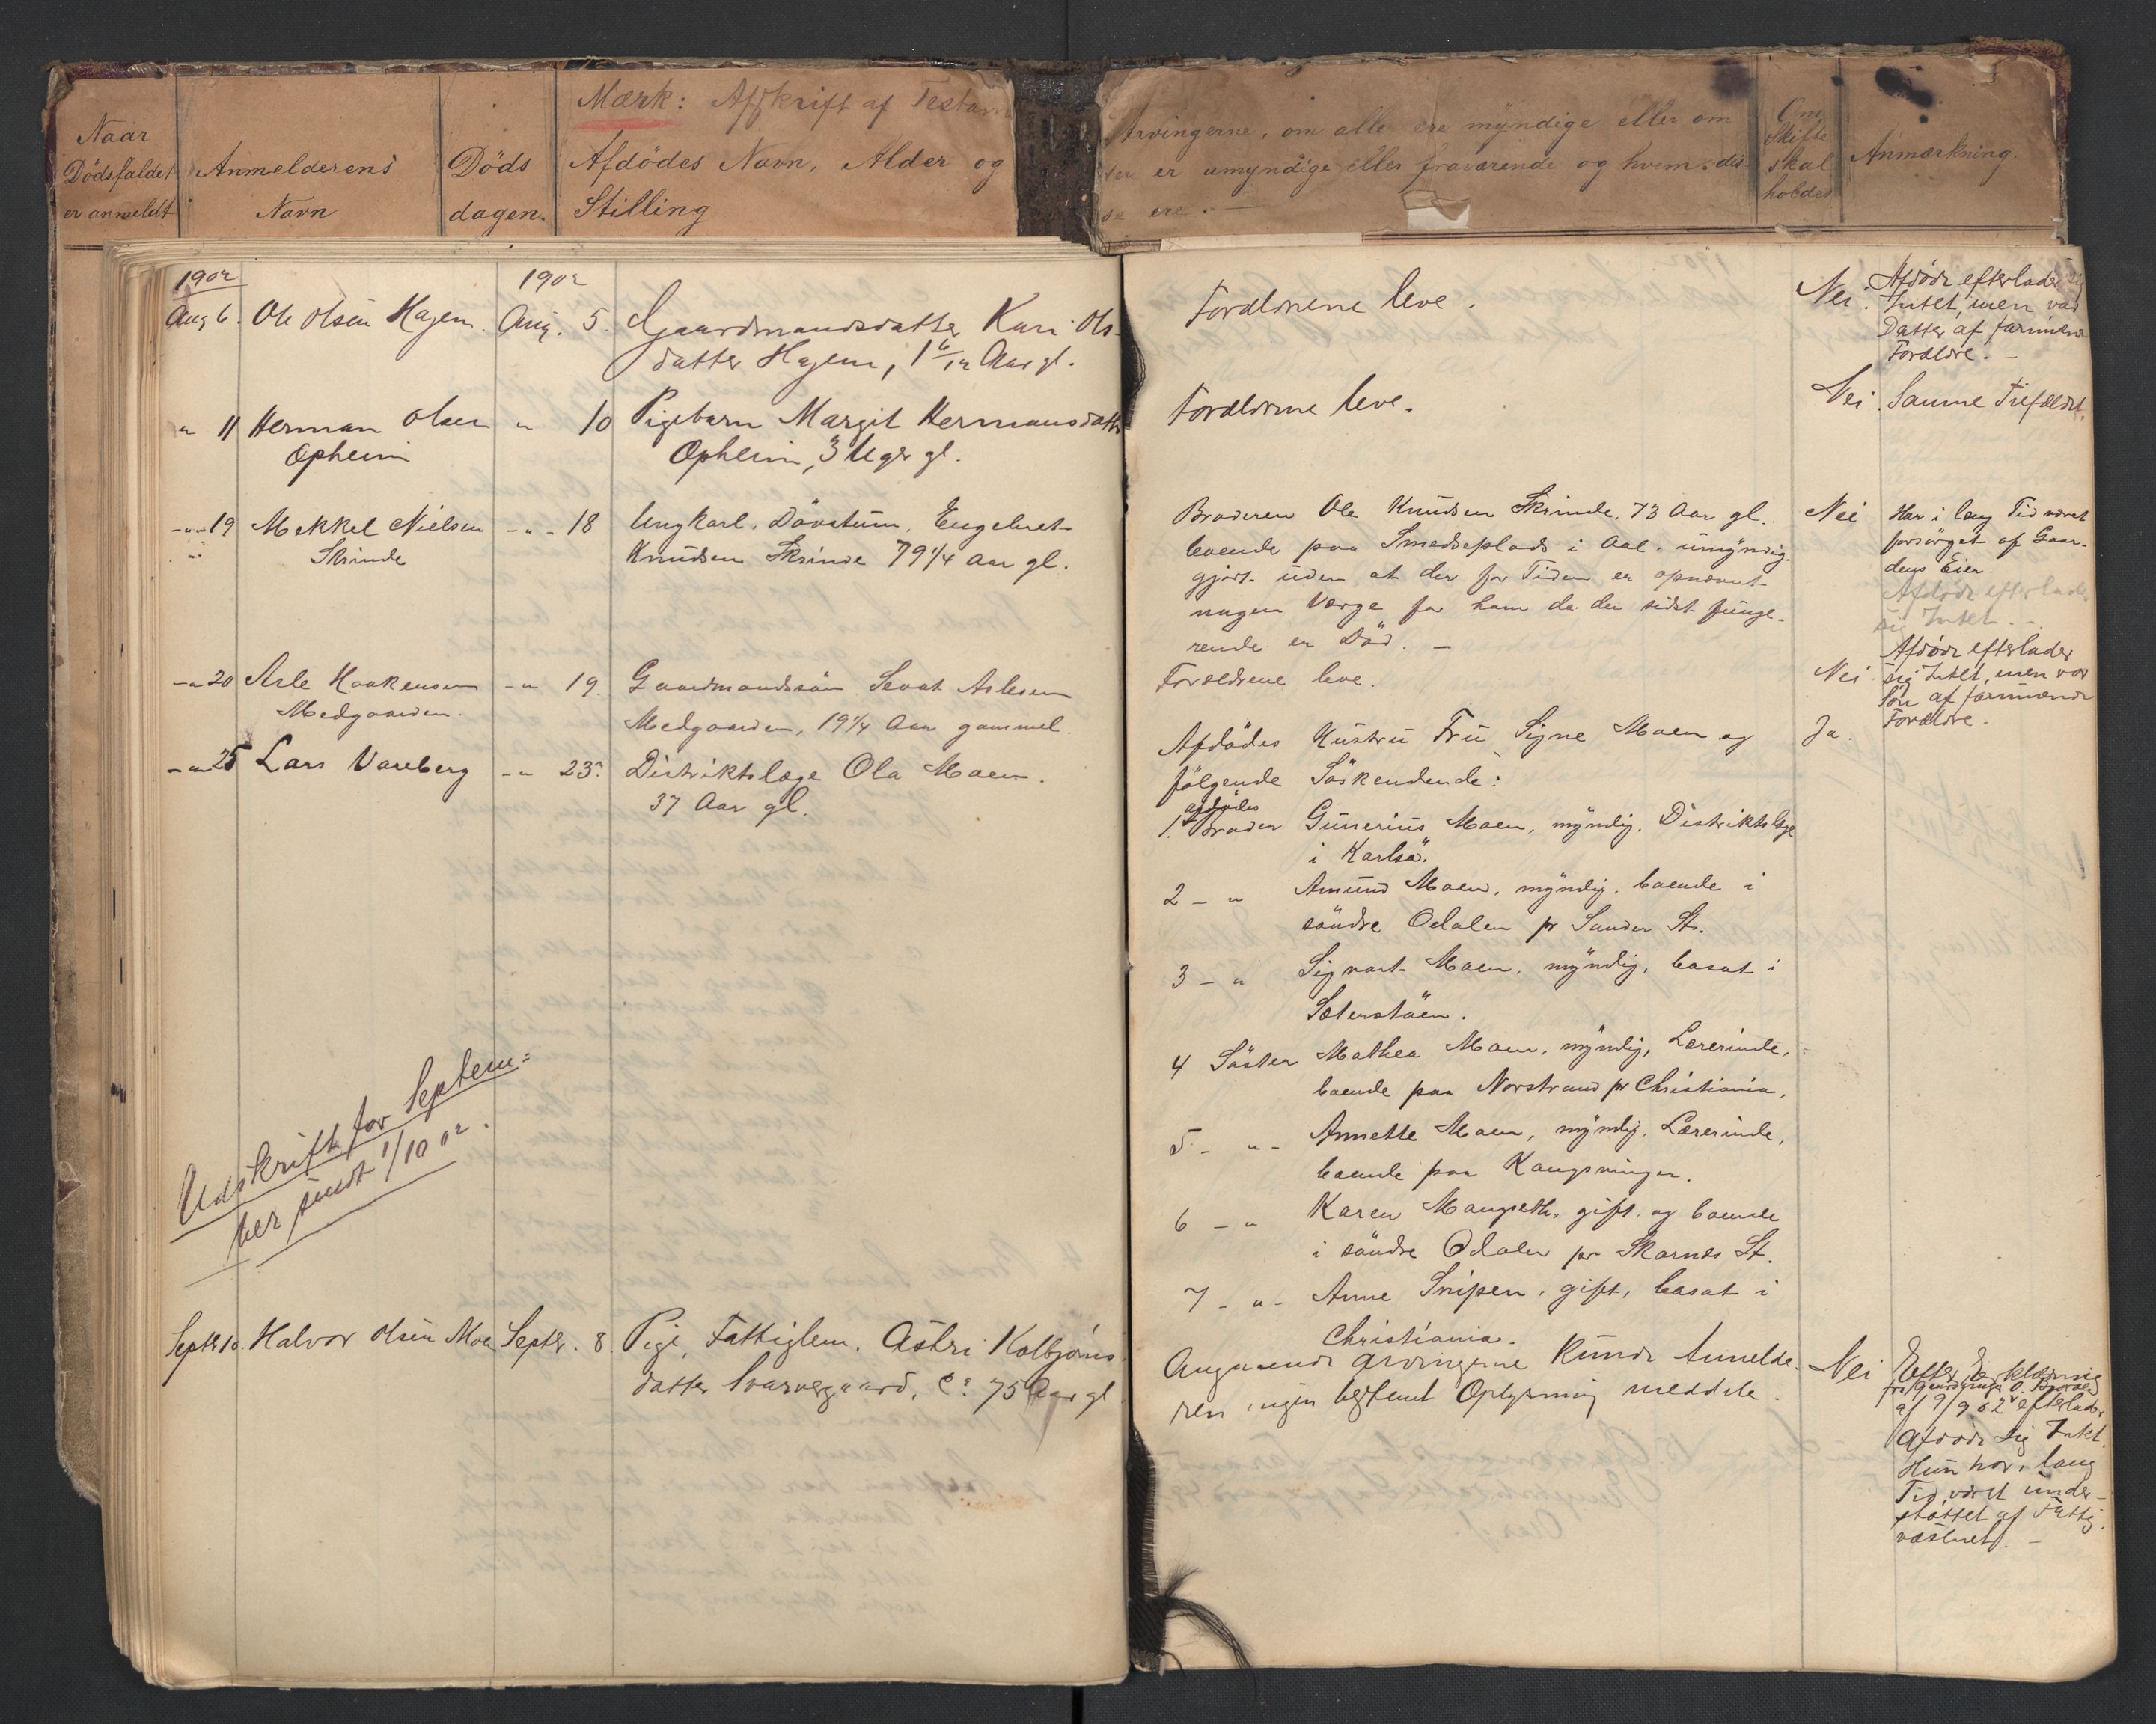 Naar
Dödsfaldet
er anmeldt
Anmelderens
Navn
Döds
dagen.
Mærk: Afskrift af Testam
Afdödes Navn, Alder og
Stilling
Arvingerne, om alle ere myndige eller om
der er umyndige eller fraværende og hvem dis
se ere.
Om
Skifte
skal
holdes
Anmærkning.
1902
1902
Aug 6. Ole Olsen Hagen. Aug. 5. Gaardmandsdatter Kari Ols-
datter Hagen, 1 6/12 Aar gl.
Forældrene leve.
Nei. Afdøde efterlader sig
Intet, men var
Datter af formuende
Forældre. -
" 11 Herman Olsen " 10 Pigebarn Margit Hermansdatter
Opheim
Opheim, 3 Uger gl.
Forældrene leve.
Nei. Samme Tilfældet.
-"-19 Mekkel Nielsen -"- 18 Ungkarl. Dövstum. Engebret
Skrinde
Knudsen Skrinde 79 1/4 Aar gl.
Broderen Ole Knudsen Skrinde. 73 Aar gl.
boende paa Smedseplads i Aal. umyndig-
gjort uden at der for Tiden er opnævnt
nogen Værge for ham da den sidst funge-
rende er Död. -
Nei Har i lang Tid været
forsørget af Gaar-
dens Eier.
Afdøde efterlader
sig Intet. -
-"20 Asle Haakensen -" 19. Gaardmandssön Sevat Aslesen
Medgaarden.
Medgaarden, 19 1/4 Aar gammel.
Forældrene leve.
Nei.
Afdøde efterlader
sig Intet, men var
Søn af formuende
Forældre.
-"25 Lars Vareberg -" 23. Distriktslæge Ola Moen.
37 Aar gl.
Afdödes Hustru Fru Signe Moen og
fölgende Söskendende:
Ja.
afdödes
1. Broder Gunerius Moen, myndig. Distriktslæge
i Karlsö.
2 - " Amund Moen, myndig, boende i
söndre Odalen pr Sander St.
3 - " Sigvart Moen, myndig, bosat i
Sæterstöen.
4 Söster Mathea Moen, myndig, Lærerinde,
boende paa Norstrand pr Christiania,
5 - "- Annette Moen, myndig, Lærerinde,
boende paa Kongsvinger.
6 - " Karen Mangseth, gift og boende
i söndre Odalen pr Skarnes St.
7 - "- Anne Snipen, gift, bosat i
Christiania.
Udskrift for Septem=
ber sendt 1/10 02.
Septr 10. Halvor Olsen Moe Septr. 8. Pige, Fattiglem. Astri Kolbjörns
datter Svarvegaard, Ca 75 Aar gl
Angaaende Arvingerne kunde Anmelde-
ren ingen bestemt Oplysning meddele.
Nei Efter Erklæring
af 9/9 02 efterlader
Afdøde sig Intet.
Hun har i lang
Tid været under-
støttet af Fattig-
væsenet. -